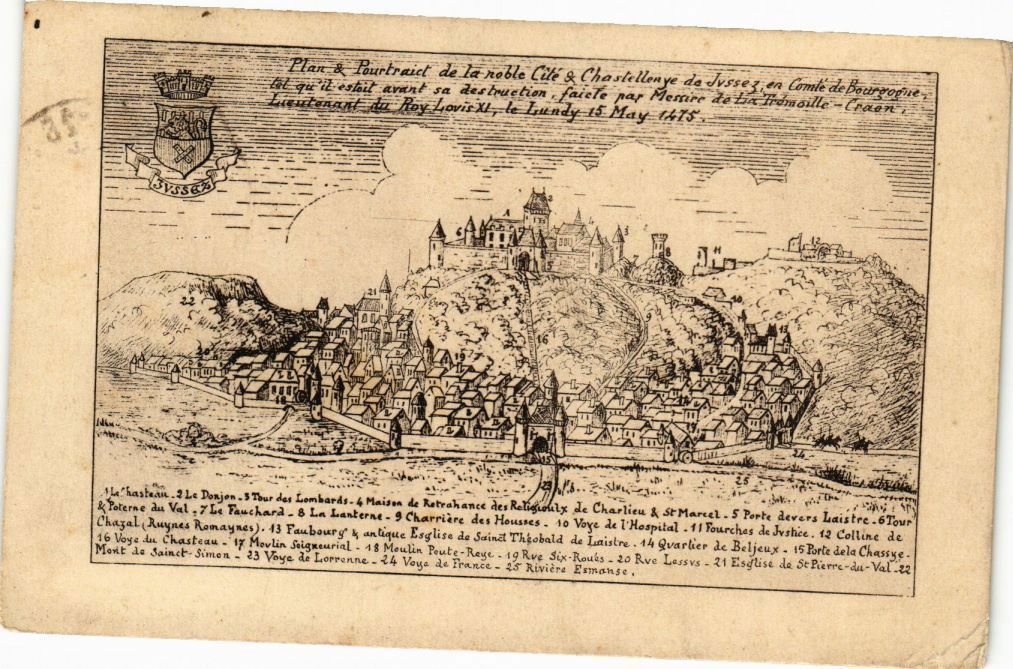 Plan & Pourtraict de la noble Cité & Chastellenye de Jvssez, en Comté de Bourgogne,
tel qu'il estoit avant sa destruction, faicte par Messire de La Trémoille-Craon,
Lieutenant du Roy Lovis XI, le Lundy 15 May 1475.
JVSSEZ
1 Le Chasteau - 2 Le Donjon - 3 Tour des Lombards - 4 Maison de Retrahance des Religioulx de Charlieu & St Marcel - 5 Porte devers Laistre - 6 Tour
& Poterne du Val - 7 Le Fauchard - 8 La Lanterne - 9 Charrière des Housses - 10 Voye de l'Hospital - 11 Fourches de Jvstice. 12 Colline de
Chazal (Ruynes Romaynes). 13 Faubourg & antique Esglise de Sainct Théobald de Laistre. 14 Qvartier de Beljeux - 15 Porte de la Chassye -
16 Voye du Chasteau - 17 Movlin Seigneurial - 18 Moulin Peute-Raye - 19 Rve Six-Roués - 20 Rve Lessvs - 21 Esglise de St Pierre-du-Val - 22
Mont de Sainct-Simon - 23 Voye de Lorrenne - 24 Voye de France - 25 Rivière Esmanse.